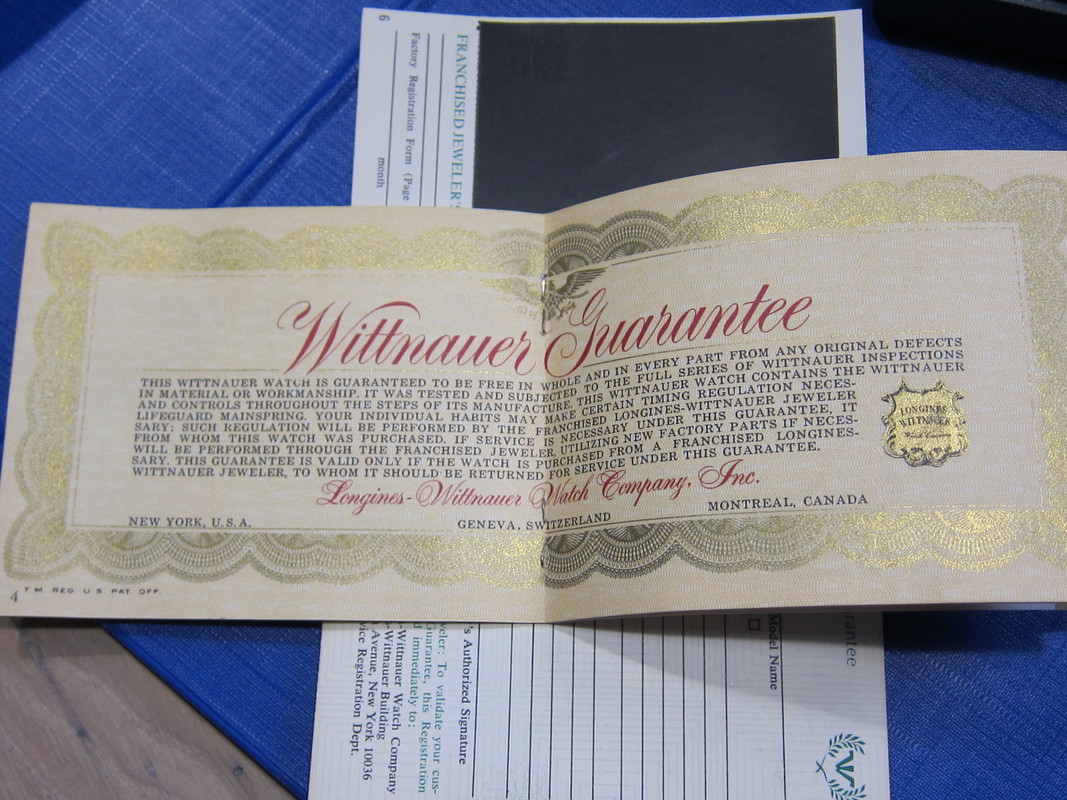 6
Factory Registration Form (Page
month
FRANCHISED JEWELER'S
Wittnauer Guarantee
THIS WITTNAUER WATCH IS GUARANTEED TO BE FREE IN WHOLE AND IN EVERY PART FROM ANY ORIGINAL DEFECTS
IN MATERIAL OR WORKMANSHIP. IT WAS TESTED AND SUBJECTED TO THE FULL SERIES OF WITTNAUER INSPECTIONS
AND CONTROLS THROUGHOUT THE STEPS OF ITS MANUFACTURE. THIS WITTNAUER WATCH CONTAINS THE WITTNAUER
LIFEGUARD MAINSPRING. YOUR INDIVIDUAL HABITS MAY MAKE CERTAIN TIMING REGULATION NECES-
SARY; SUCH REGULATION WILL BE PERFORMED BY THE FRANCHISED LONGINES-WITTNAUER JEWELER
FROM WHOM THIS WATCH WAS PURCHASED. IF SERVICE IS NECESSARY UNDER THIS GUARANTEE, IT
WILL BE PERFORMED THROUGH THE FRANCHISED JEWELER, UTILIZING NEW FACTORY PARTS IF NECES-
SARY. THIS GUARANTEE IS VALID ONLY IF THE WATCH IS PURCHASED FROM A FRANCHISED LONGINES-
WITTNAUER JEWELER, TO WHOM IT SHOULD BE RETURNED FOR SERVICE UNDER THIS GUARANTEE.
LONGINES
WITTNAUER
Longines-Wittnauer Watch Company, Inc.
NEW YORK, U.S.A.
GENEVA, SWITZERLAND
MONTREAL, CANADA
4
T M REG U S PAT OFF.
rantee
Model Name
's Authorized Signature
weler: To validate your cus-
Guarantee, this Registration
d immediately to:
-Wittnauer Watch Company
-Wittnauer Building
Avenue, New York 10036
vice Registration Dept.
W